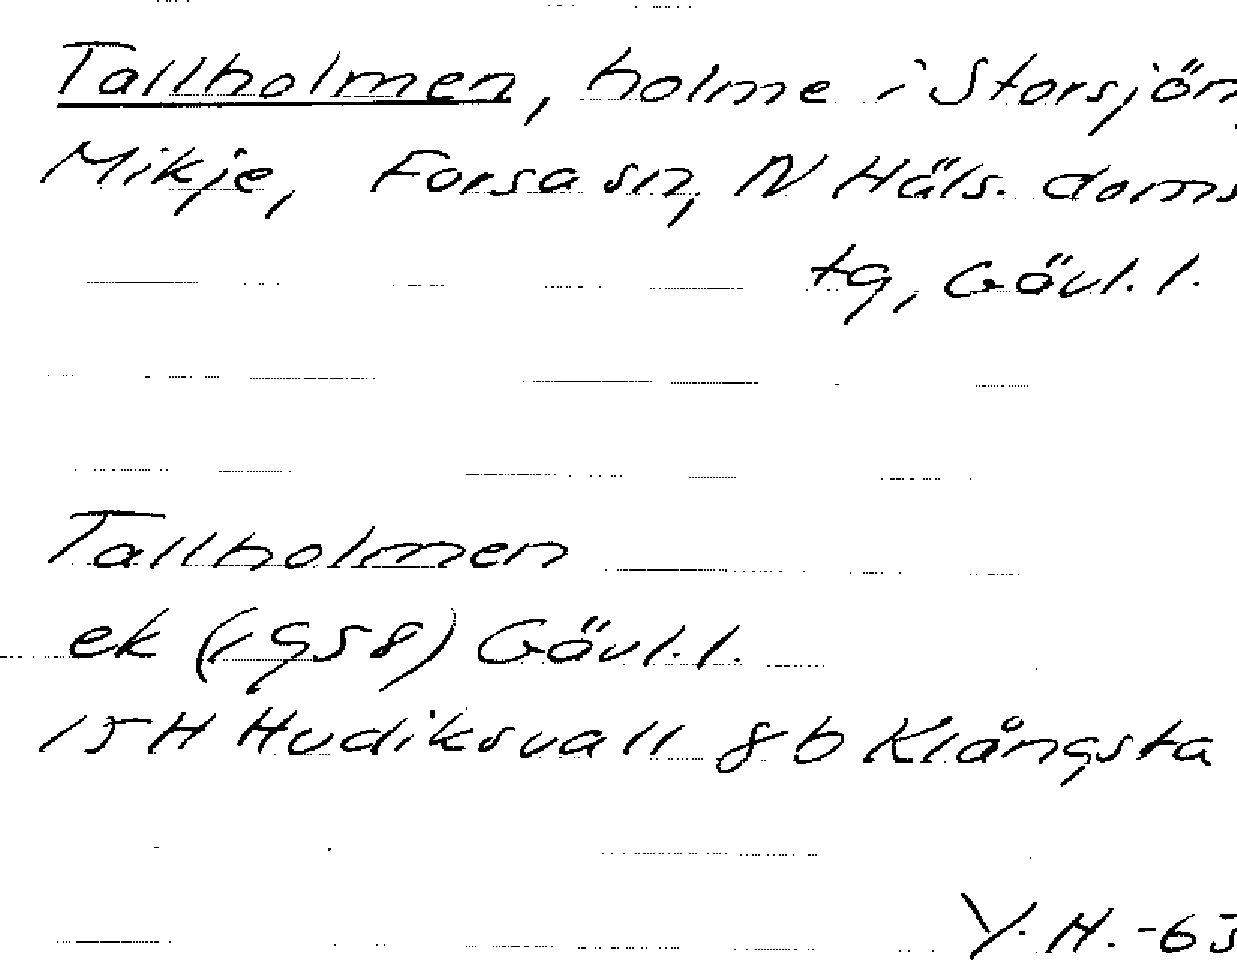 Tallholmen, holme i Storsjön,
Mikje, Forsa sn, N Häls. doms
tg, Gävl. l.
Tallholmen
ek (1958) Gävl. l.
15H Hudiksvall 8b Klångsta
Y. H. -65